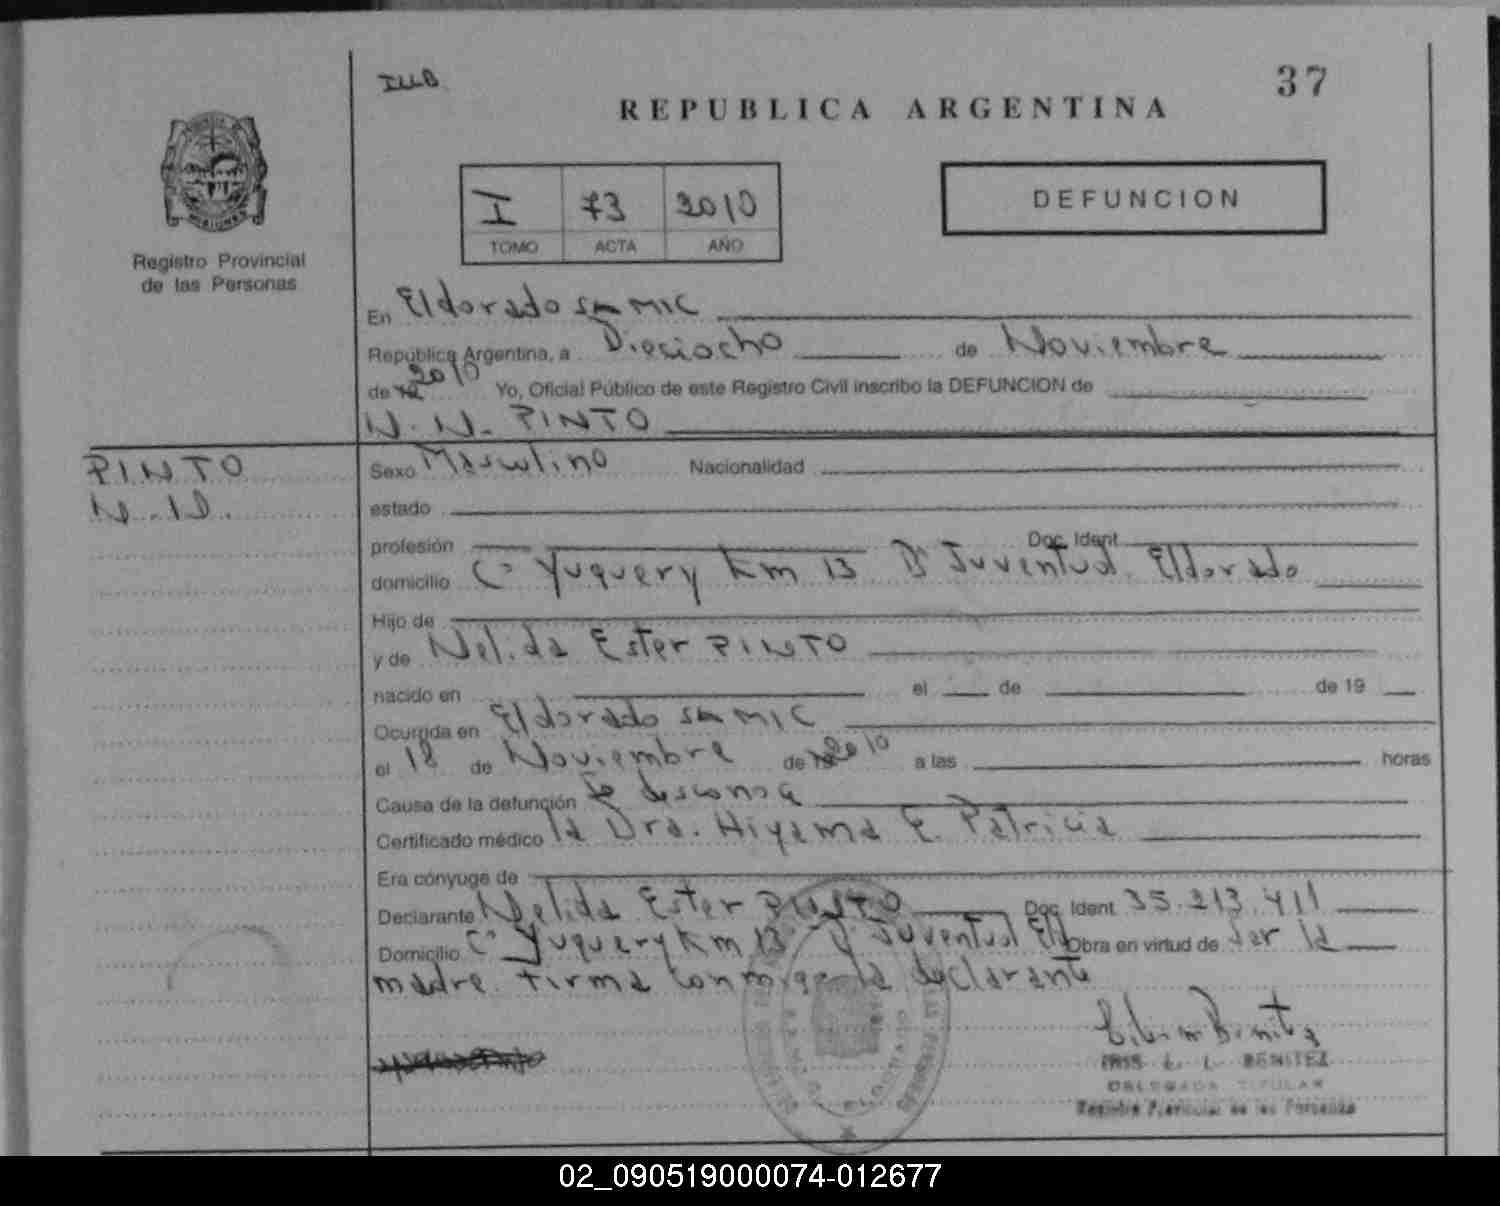 37
REPUBLICA ARGENTINA
I 73 2010
TOMO ACTA AÑO
DEFUNCION
MISIONES
Registro Provincial
de las Personas
En Eldorado SAMIC
República Argentina, a Dieciocho de Noviembre
de 2010 Yo, Oficial Público de este Registro Civil inscribo la DEFUNCION de
N.N. PINTO
PINTO
N.N.
Sexo Masculino Nacionalidad
estado
profesión Doc. Ident
domicilio Cº Yuquery Km 13 Bº Juventud Eldorado
Hijo de
y de Nelida Ester PINTO
nacido en el de de 19
Ocurrida en Eldorado SAMIC
el 18 de Noviembre de 2010 a las horas
Causa de la defunción Se desconoce
Certificado médico la Dra. Hiyama E. Patricia
Era cónyuge de
Declarante Nelida Ester PINTO Doc. Ident 35.213.411
Domicilio Cº Yuquery Km 13 Bº Juventud Eld Obra en virtud de ser la
madre firma conmigo la declarante
IRIS L. L. BENITEZ
DELEGADA TITULAR
Registro Provincial de las Personas
02_090519000074-012677